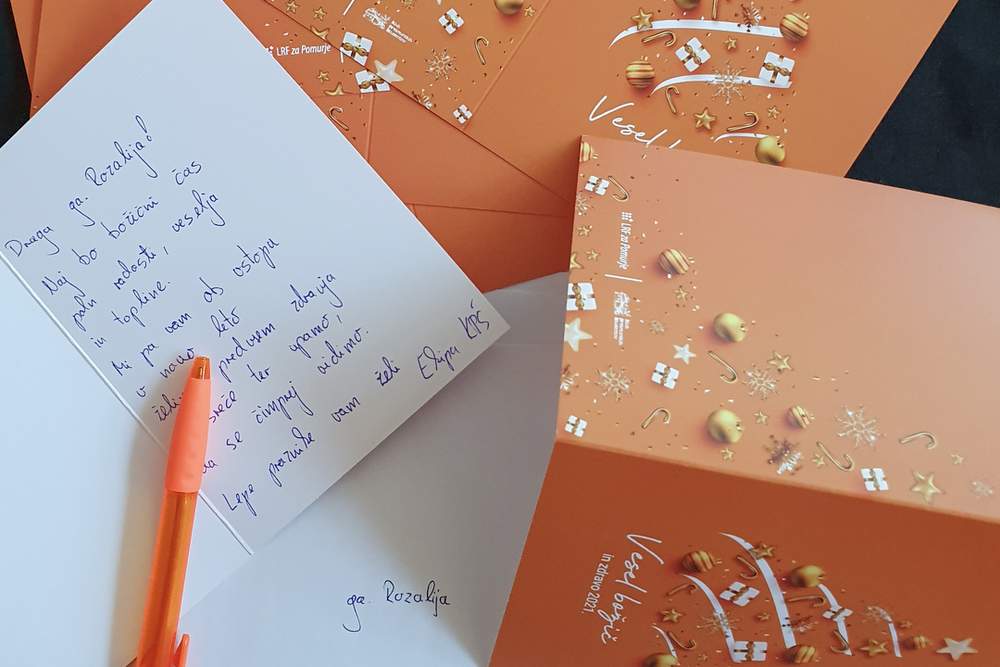 Draga ga. Rozalija!
Naj bo božični čas
poln radosti, veselja
in topline.
Mi pa vam ob vstopu
v novo leto
želi predvsem zdravja
sreče ter upamo,
da se čimprej vidimo.
Lepe praznike vam želi Ekipa KPŠ
ga. Rozalija
LRF za Pomurje
Vesel
LRF za Pomurje
Vesel božič
in zdravo 2021.